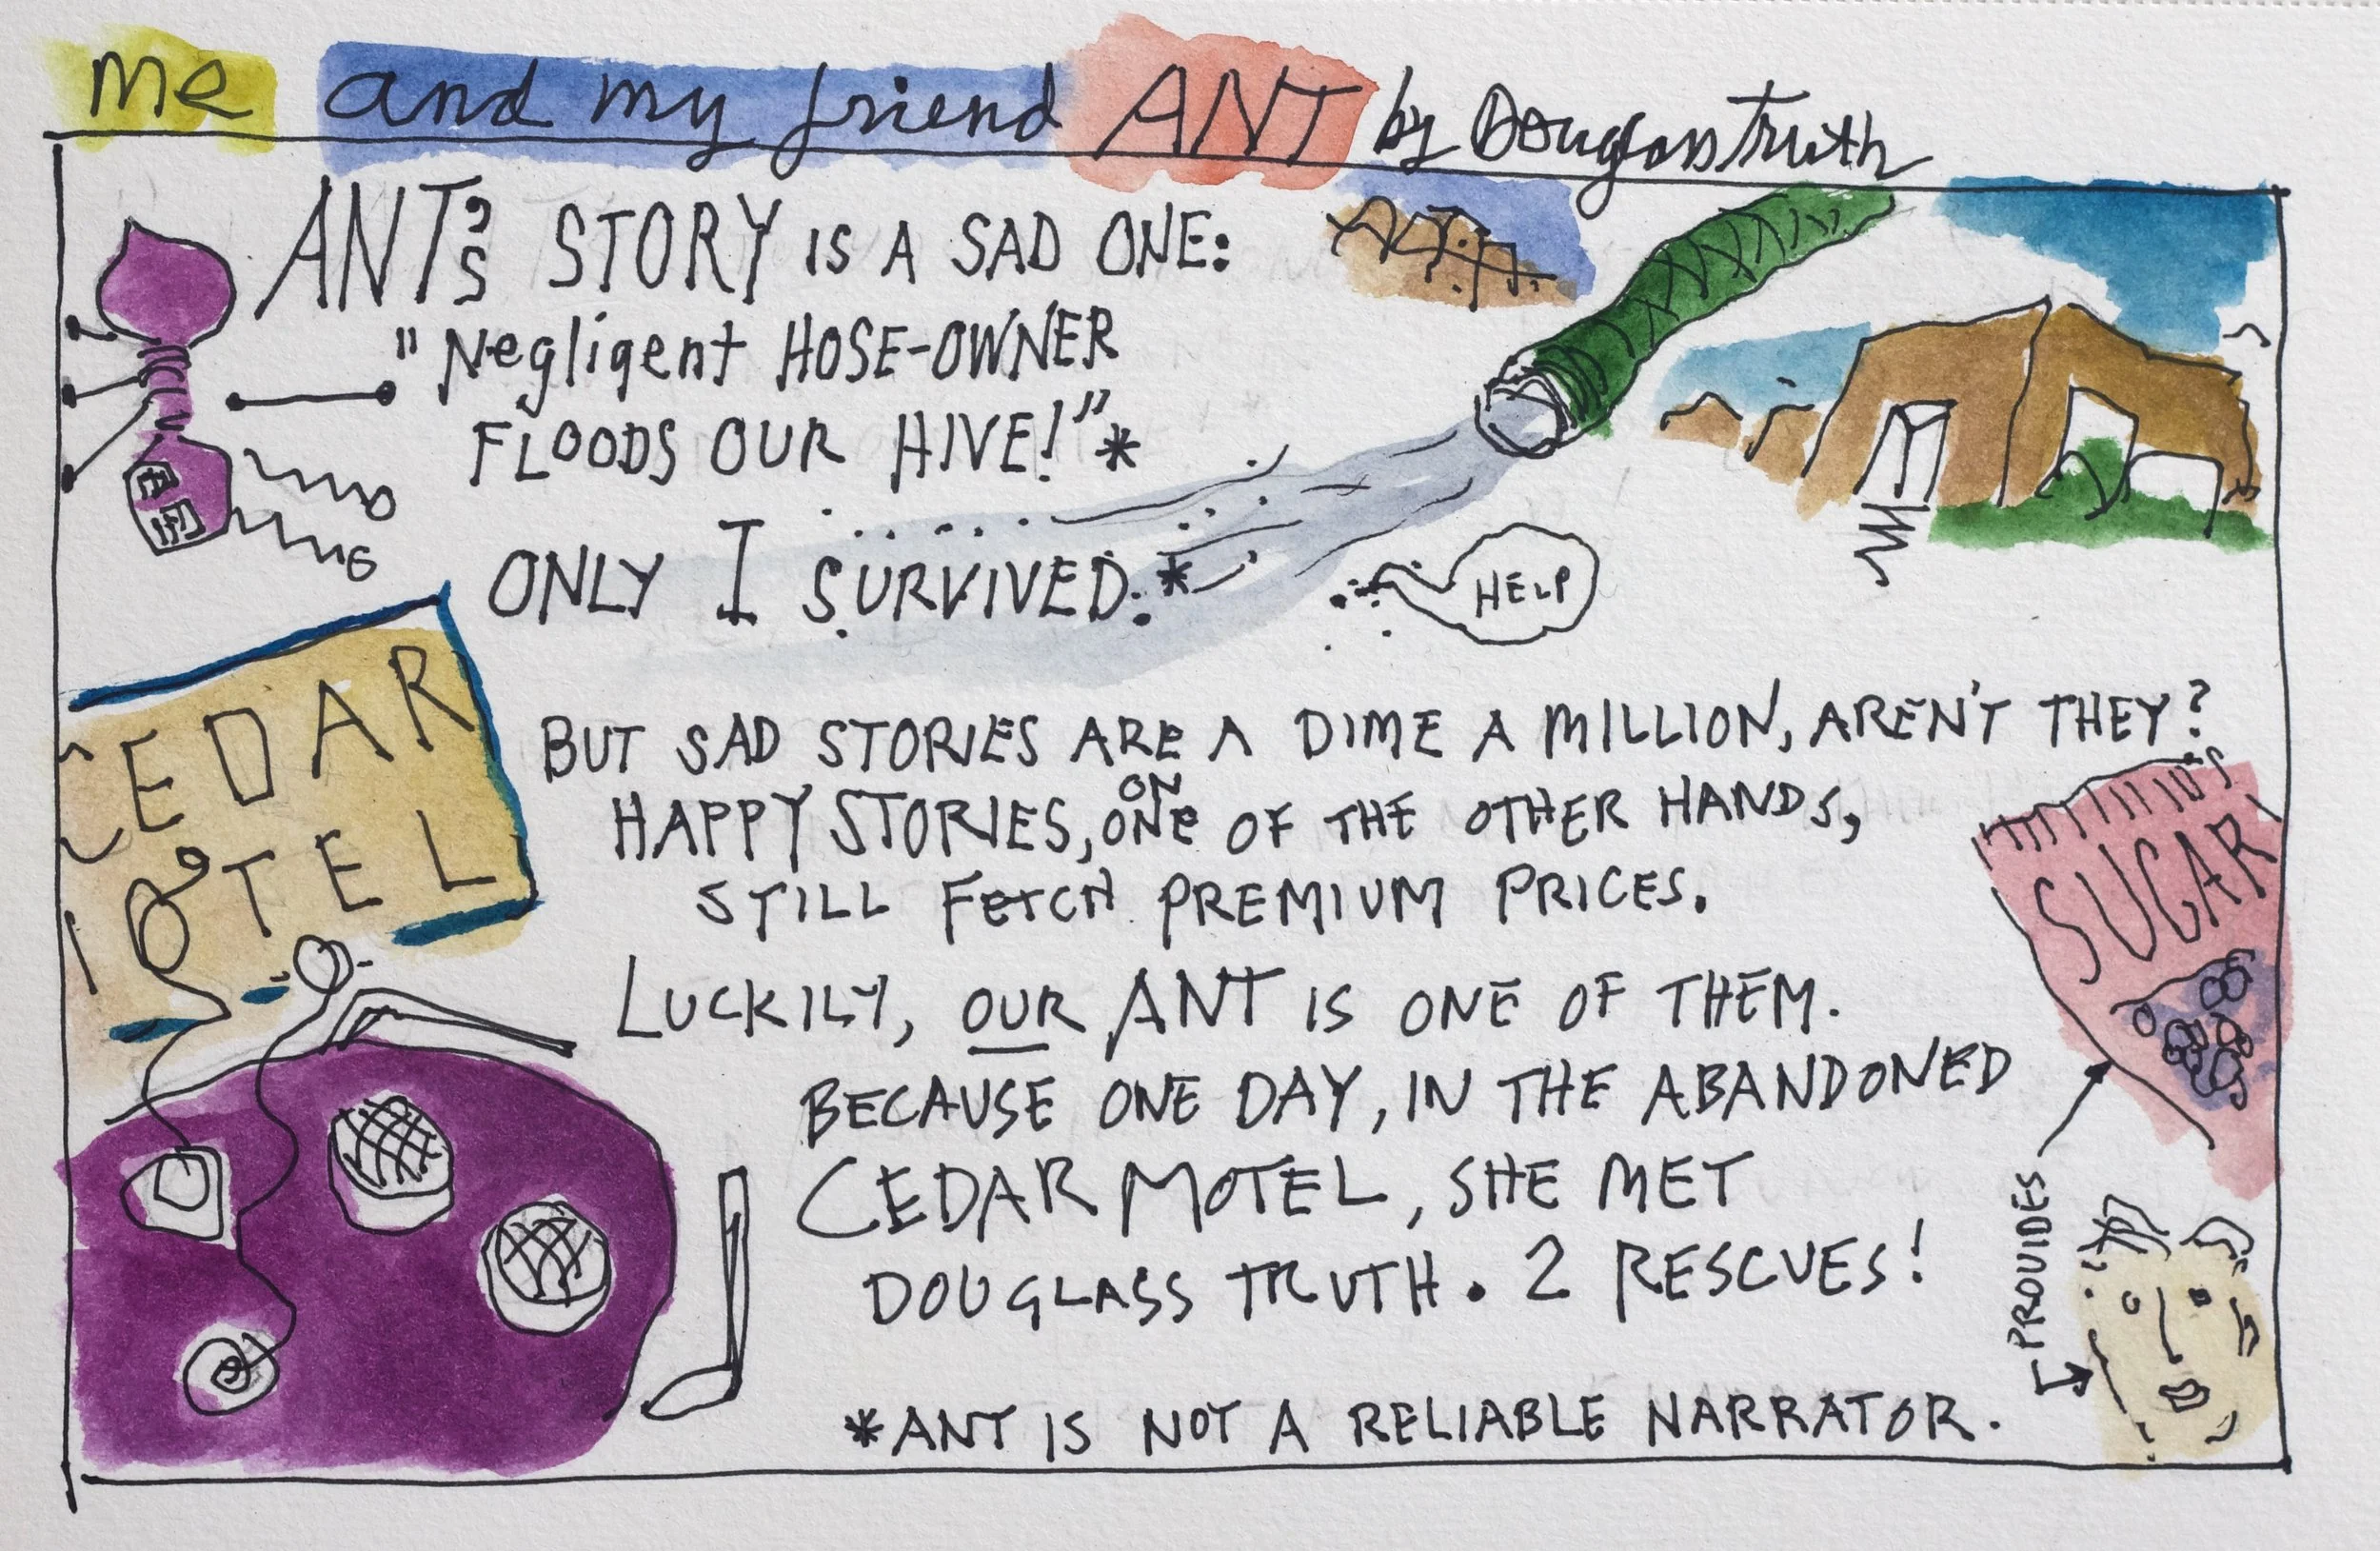 me and my friend ANT by Douglass Truth
ANT's STORY IS A SAD ONE:
"Negligent HOSE-OWNER
FLOODS OUR HIVE!"*
ONLY I SURVIVED.*
HELP
CEDAR
MOTEL
BUT SAD STORIES ARE A DIME A MILLION, AREN'T THEY?
HAPPY STORIES, ON ONE OF THE OTHER HANDS,
STILL FETCH PREMIUM PRICES.
SUGAR
LUCKILY, OUR ANT IS ONE OF THEM.
BECAUSE ONE DAY, IN THE ABANDONED
CEDAR MOTEL, SHE MET
DOUGLASS TRUTH. 2 RESCUES!
PROVIDES
*ANT IS NOT A RELIABLE NARRATOR.